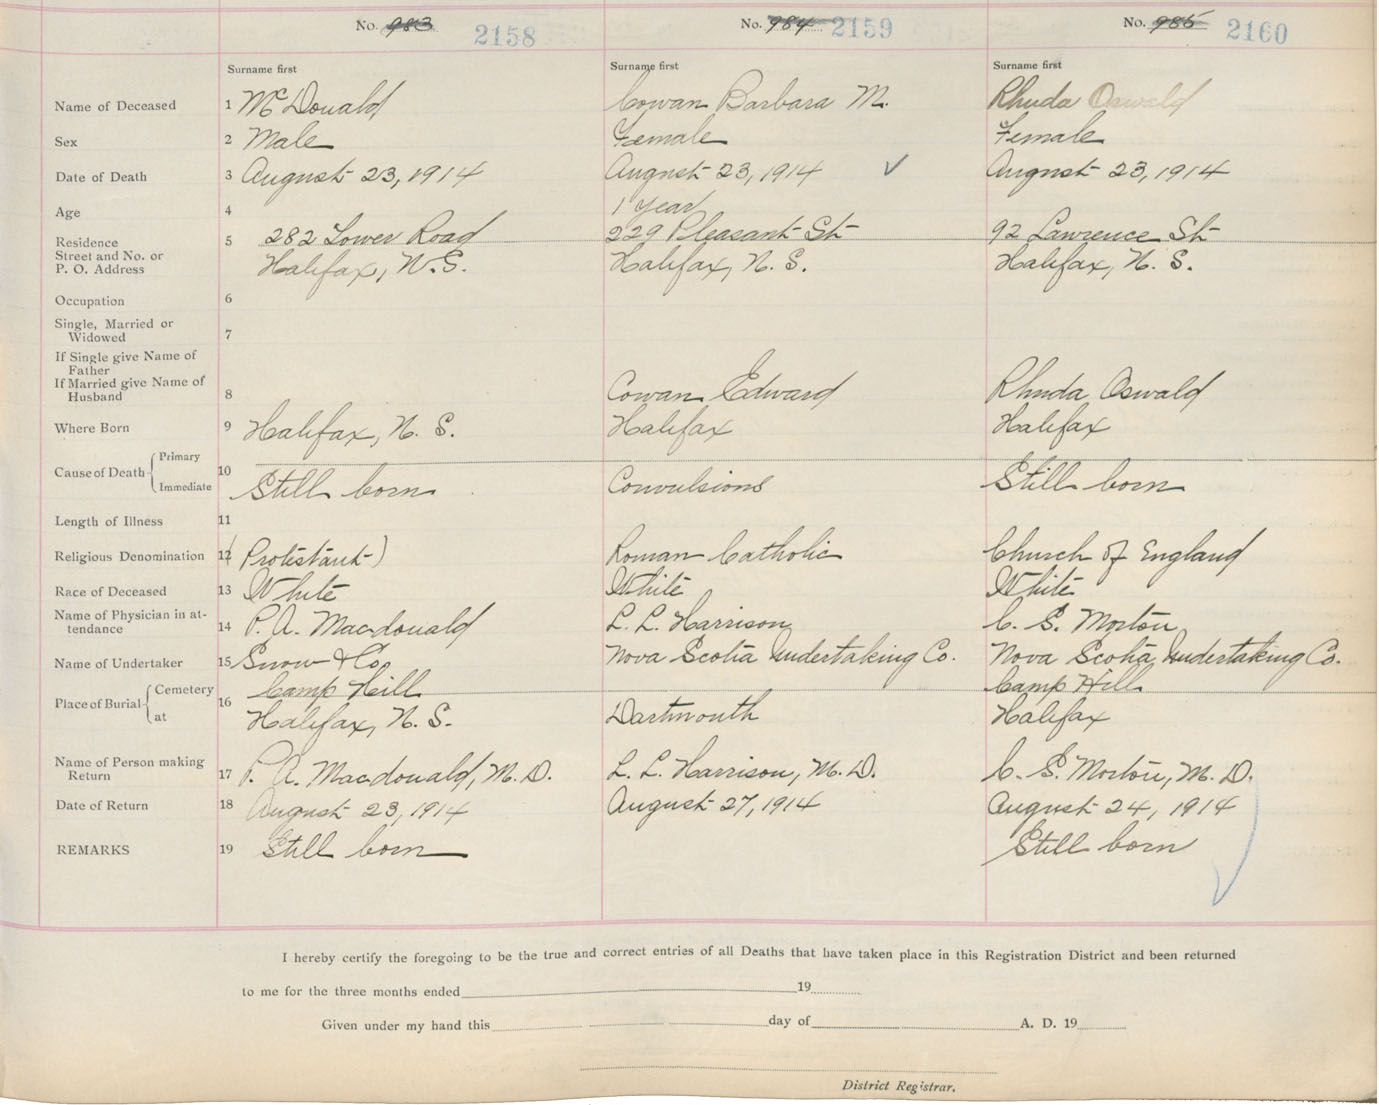 No. 983 2158 No. 984 2159 No. 985 2160
Surname first Surname first Surname first
Name of Deceased 1 McDonald Cowan Barbara M. Rhuda Oswald
Sex 2 Male Female Female
Date of Death 3 August 23, 1914 August 23, 1914 ✓ August 23, 1914
Age 4 1 year
Residence 5 282 Lower Road 229 Pleasant St 92 Lawrence St
Street and No. or
P. O. Address Halifax, N.S. Halifax, N. S. Halifax, N. S.
Occupation 6
Single, Married or
Widowed 7
If Single give Name of
Father
If Married give Name of
Husband 8 Cowan Edward Rhuda Oswald
Where Born 9 Halifax, N. S. Halifax Halifax
Cause of Death Primary
10
Immediate Still born Convulsions Still born
Length of Illness 11
Religious Denomination 12 (Protestant) Roman Catholic Church of England
Race of Deceased 13 White White White
Name of Physician in at-
tendance 14 P. A. Macdonald L. L. Harrison C. S. Morton
Name of Undertaker 15 Snow & Co. Nova Scotia Undertaking Co. Nova Scotia Undertaking Co.
Place of Burial Cemetery 16 Camp Hill Camp Hill
at Halifax, N. S. Dartmouth Halifax
Name of Person making
Return 17 P. A. Macdonald, M. D. L. L. Harrison, M. D. C. S. Morton, M. D.
Date of Return 18 August 23, 1914 August 27, 1914 August 24, 1914
REMARKS 19 Still born Still born
I hereby certify the foregoing to be the true and correct entries of all Deaths that have taken place in this Registration District and been returned
to me for the three months ended 19
Given under my hand this day of A. D. 19
District Registrar.